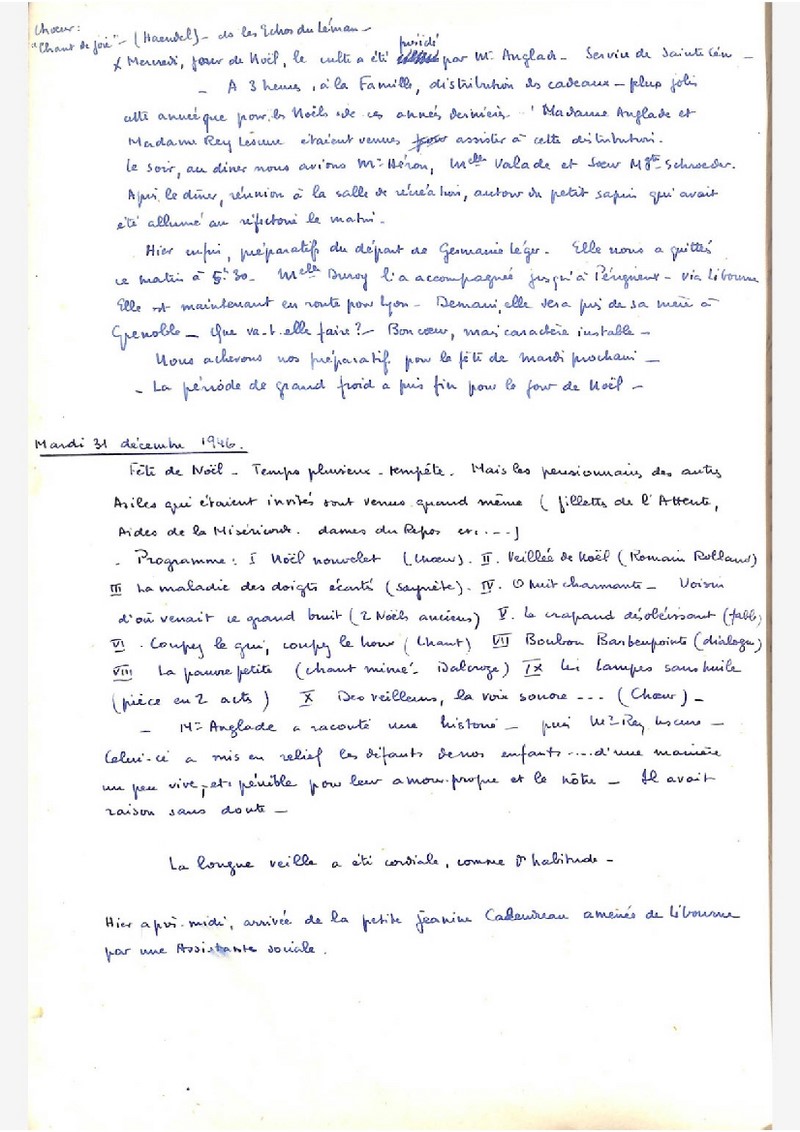 Chœur :
"Chant de joie" - (Haendel) - ds les Echos du Léman -
x Mercredi, jour de Noël, le culte a été présidé par Mr Anglade - Service de Sainte Cèn -
- A 3 heures, à la Famille, distribution des cadeaux - plus jolis
cette année que pour les Noëls de ces années dernières. Madame Anglade et
Madame Rey Lescure étaient venues assister à cette distribution.
Le soir, au dîner nous avions Mr Héron, Melle Valade et Sœur Mgte Schroeder.
Après le dîner, réunion à la salle de récréation, autour du petit sapin qui avait
été allumé au réfectoire le matin -
Hier enfin, préparatifs du départ de Germaine Léger. Elle nous a quittés
ce matin à 5h 30 - Melle Buroy l'a accompagnée jusqu'à Périgueux - via Libourne
Elle est maintenant en route pour Lyon - Demain, elle sera près de sa mère à
Grenoble - Que va-t-elle faire ? - Bon cœur, mais caractère instable -
Nous achevons nos préparatifs pour la fête de mardi prochain -
- La période de grand froid a pris fin pour le jour de Noël -
Mardi 31 décembre 1946.
Fête de Noël - Temps pluvieux - tempête. Mais les pensionnaires des autres
Asiles qui étaient invités sont venus quand même (fillettes de l'Attente,
Aides de la Miséricorde. dames du Repos etc....)
- Programme : I Noël nouvelet (Chœur). II. Veillée de Noël (Romain Rolland)
III La maladie des doigts écartés (saynète). IV. O Nuit charmante - Voisin
d'où venait ce grand bruit (2 Noëls anciens) V. Le crapaud désobéissant (fable)
VI. Coupez le gui, coupez le houx (Chant) VII Bonbon Barbenpointe (dialogue)
VIII La pauvre petite (chant mimé - Dalcroze) IX Les lampes sans huile
(pièce en 2 actes) X Des veilleurs, la voix sonore ... (Chœur) -
- Mr Anglade a raconté une histoire - puis Mr Rey Lescure -
Celui-ci a mis en relief les défauts de nos enfants .... d'une manière
un peu vive, et pénible pour leur amour-propre et le nôtre - Il avait
raison sans doute -
La longue veille a été cordiale, comme d'habitude -
Hier après-midi, arrivée de la petite Jeanine amenée de Libourne
par une Assistante sociale.